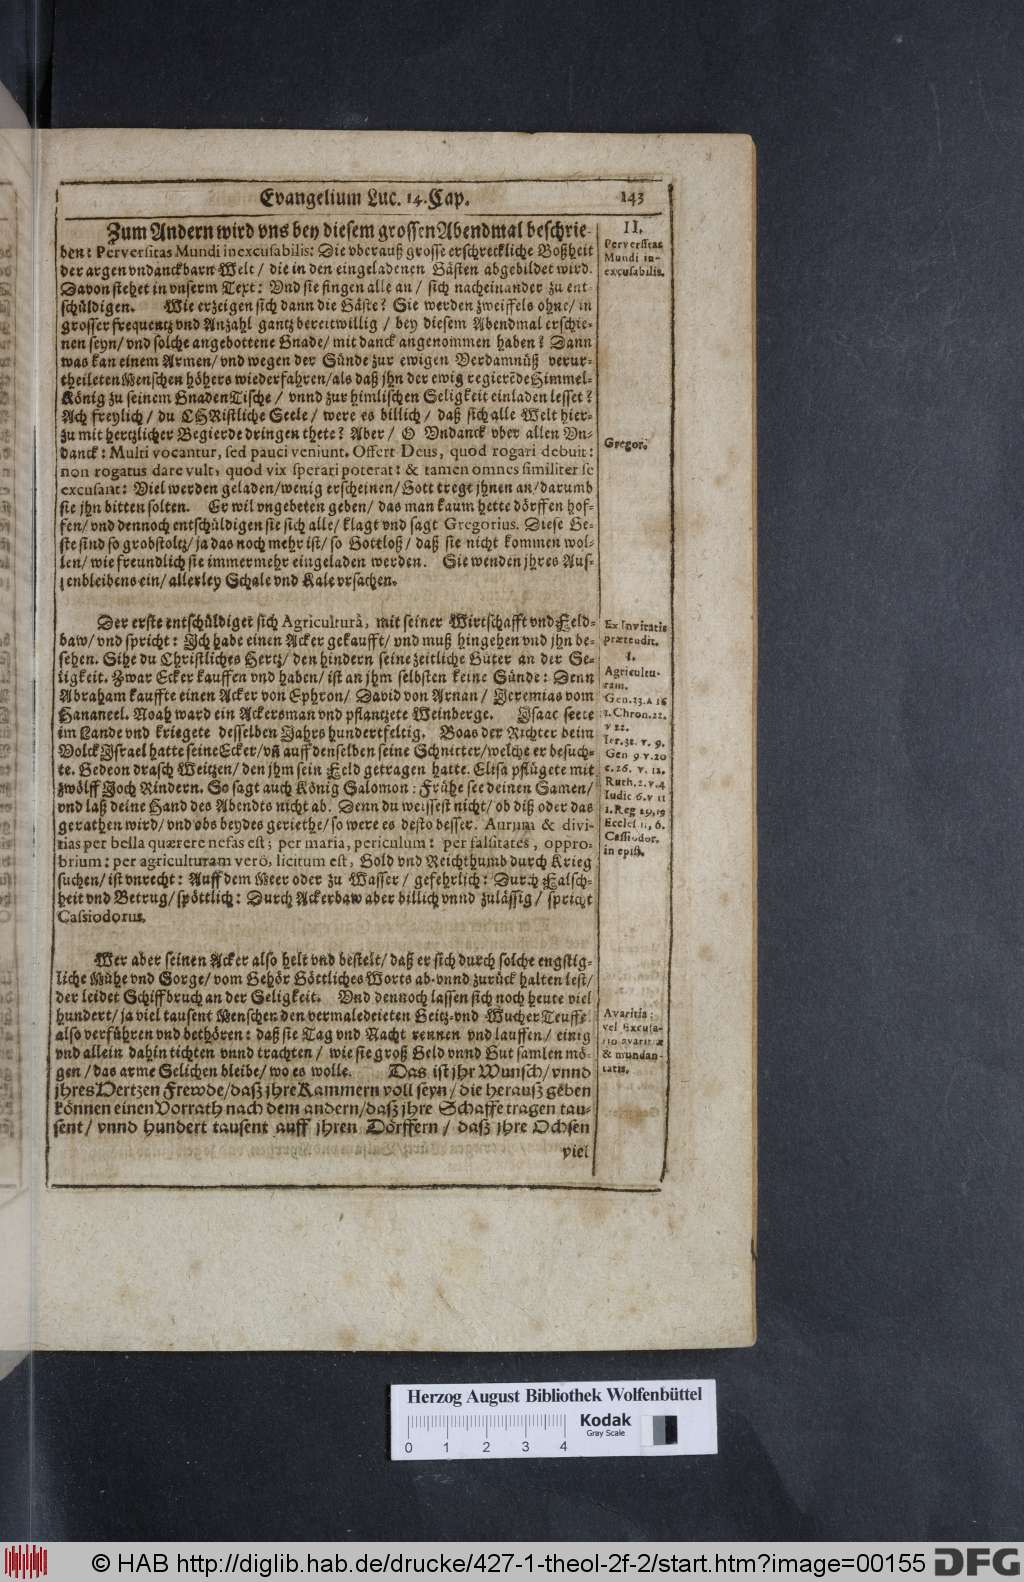 Evangelium Luc. 14. Cap. 143
Zum Andern wird vns bey diesem grossen Abendmal beschrie-
ben: Perversitas Mundi inexcusabilis: Die vberauß grosse erschreckliche Boßheit
der argen vndanckbarn Welt / die in den eingeladenen Gästen abgebildet wird.
Davon stehet in vnserm Text: Vnd sie fingen alle an / sich nacheinander zu ent-
schüldigen. Wie erzeigen sich dann die Gäste? Sie werden zweiffels ohne / in
grosser frequentz vnd Anzahl gantz bereitwillig / bey diesem Abendmal erschie-
nen seyn / vnd solche angebottene Gnade / mit danck angenommen haben? Dann
was kan einem Armen / vnd wegen der Sünde zur ewigen Verdamnüß verur-
theileten Menschen höhers wiederfahren / als daß jhn der ewig regierēde Himmel-
König zu seinem Gnaden Tische / vnnd zur himlischen Seligkeit einladen lesset?
Ach freylich / du CHRistliche Seele / were es billich / daß sich alle Welt hier-
zu mit hertzlicher Begierde dringen thete? Aber / O Vndanck vber allen Vn-
danck: Multi vocantur, sed pauci veniunt. Offert Deus, quod rogari debuit:
non rogatus dare vult, quod vix sperari poterat: & tamen omnes similiter se
excusant: Viel werden geladen / wenig erscheinen / Gott tregt jhnen an / darumb
sie jhn bitten solten. Er wil vngebeten geben / das man kaum hette dörffen hof-
fen / vnd dennoch entschüldigen sie sich alle / klagt vnd sagt Gregorius. Diese Ge-
ste sind so grobstoltz / ja das noch mehr ist / so Gottloß / daß sie nicht kommen wol-
len / wie freundlich sie immermehr eingeladen werden. Sie wenden jhres Aus-
senbleibens ein / allerley Schale vnd Kale vrsachen.
Der erste entschüldiget sich Agriculturâ, mit seiner Wirtschafft vnd Feld-
baw / vnd spricht: Ich habe einen Acker gekaufft / vnd muß hingehen vnd jhn be-
sehen. Sihe du Christliches Hertz / den hindern seine zeitliche Güter an der Se-
ligkeit. Zwar Ecker kauffen vnd haben / ist an jhm selbsten keine Sünde: Denn
Abraham kauffte einen Acker von Ephron / David von Arnan / Jeremias vom
Hananeel. Noah ward ein Ackersman vnd pflantzete Weinberge. Isaac seete
im Lande vnd kriegete desselben Jahrs hundertfeltig. Boas der Richter beim
Volck Israel hatte seine Ecker / vñ auff denselben seine Schnitter / welche er besuch-
te. Gedeon drasch Weitzen / den jhm sein Feld getragen hatte. Elisa pflügete mit
zwölff Joch Rindern. So sagt auch König Salomon: Frühe see deinen Samen /
vnd laß deine Hand des Abendts nicht ab. Denn du weissest nicht / ob diß oder das
gerathen wird / vnd obs beydes geriethe / so were es desto besser. Aurum & divi-
tias per bella quærere nefas est; per maria, periculum: per falsitates, oppro-
brium: per agriculturam verò, licitum est, Gold vnd Reichthumb durch Krieg
suchen / ist vnrecht: Auff dem Meer oder zu Wasser / gefehrlich: Durch Falsch-
heit vnd Betrug / spöttlich: Durch Ackerbaw aber billich vnnd zulässig / spricht
Cassiodorus.
Wer aber seinen Acker also helt vnd bestelt / daß er sich durch solche engstig-
liche Mühe vnd Sorge / vom Gehör Göttliches Worts ab- vnnd zurück halten lest /
der leidet Schiffbruch an der Seligkeit. Vnd dennoch lassen sich noch heute viel
hundert / ja viel tausent Menschen den vermaledeieten Geitz- vnd Wucher Teuffel
also verführen vnd bethören: daß sie Tag vnd Nacht rennen vnd lauffen / einig
vnd allein dahin tichten vnnd trachten / wie sie groß Geld vnnd Gut samlen mö-
gen / das arme Selichen bleibe / wo es wolle. Das ist jhr Wunsch / vnnd
jhres Hertzen Frewde / daß jhre Kammern voll seyn / die herauß geben
können einen Vorrath nach dem andern / daß jhre Schaffe tragen tau-
sent / vnnd hundert tausent auff jhren Dörffern / daß jhre Ochsen
viel
II.
Perversitas
Mundi in-
excusabilis.
Gregor.
Ex Invitatis
prætendit.
1.
Agricultu-
ram.
Gen. 23. v. 16
1. Chron. 22.
v 22.
Ier. 32. v. 9.
Gen 9 v. 20
c. 26. v. 12.
Ruth. 2. v. 4
Iudic 6. v 11
1. Reg 19, 19
Eccles 11, 6.
Cassiodor.
in epist.
Avaritia:
vel Excusa-
tio avaritiæ
& mundan-
itatis.
Herzog August Bibliothek Wolfenbüttel
Kodak
Gray Scale
0 1 2 3 4
© HAB http://diglib.hab.de/drucke/427-1-theol-2f-2/start.htm?image=00155 DFG